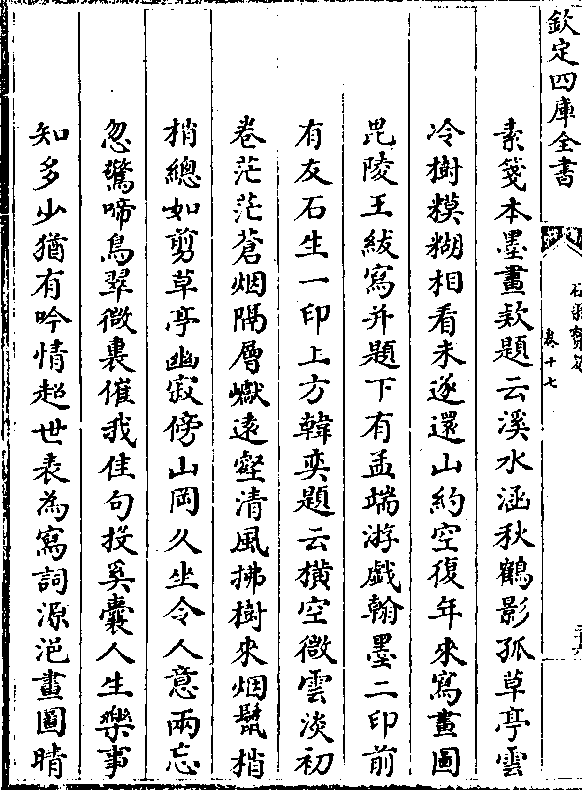 欽定四庫全書
卷十七
素箋本墨畫欵題云溪水涵秋鶴影孤草亭雲
冷樹糢糊相看未遂還山約空復年來寫畫圖
毘陵王紱寫并題下有孟端游戲翰墨二印前
有友石生一印上方韓奕題云横空微雲淡初
卷茫茫蒼烟隔層巘遠壑清風拂樹來烟鬟梢
梢總如剪草亭幽寂傍山岡久坐令人意兩忘
忽驚啼鳥翠微裏催我佳句投奚囊人生樂事
知多少猶有吟情超世表為寫詞源浥畫圖晴